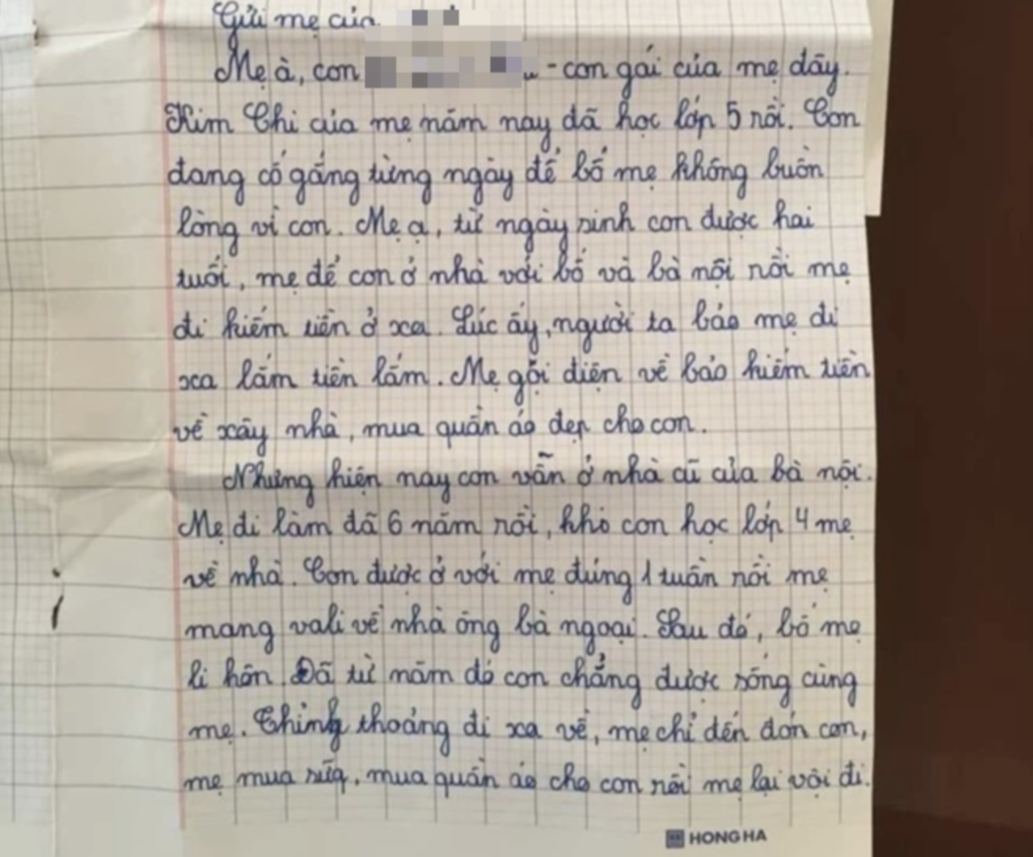 Gửi mẹ của
Mẹ à, con - con gái của mẹ đây.
Kim Chi của mẹ năm nay đã học lớp 5 rồi. Con
đang cố gắng từng ngày để bố mẹ không buồn
lòng vì con. Mẹ ạ, từ ngày sinh con được hai
tuổi, mẹ để con ở nhà với bố và bà nội rồi mẹ
đi kiếm tiền ở xa. Lúc ấy, người ta bảo mẹ đi
xa lắm tiền lắm. Mẹ gọi điện về bảo kiếm tiền
về xây nhà, mua quần áo đẹp cho con.
Nhưng hiện nay con vẫn ở nhà cũ của bà nội.
Mẹ đi làm đã 6 năm rồi, khi con học lớp 4 mẹ
về nhà. Con được ở với mẹ đúng 1 tuần rồi mẹ
mang vali về nhà ông bà ngoại. Sau đó, bố mẹ
li hôn. Đã từ năm đó con chẳng được sống cùng
mẹ. Thỉnh thoảng đi xa về, mẹ chỉ đến đón con,
mẹ mua sữa, mua quần áo cho con rồi mẹ lại vội đi.
HONG HA